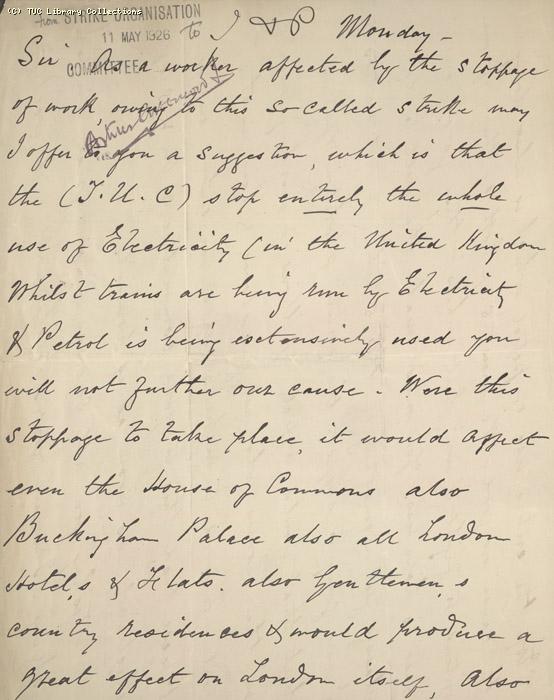 (C) TUC Library Collections
from STRIKE ORGANISATION to I & P
11 MAY 1926
COMMITTEE
Monday -
Sir. As a worker affected by the stoppage
of work, owing to this so called strike may
I offer to you a suggestion, which is that
the (T.U.C) stop entirely the whole
use of Electricity (in the United Kingdom
Whilst trains are being run by Electricity
& Petrol is being extensively used you
will not further our cause - Were this
stoppage to take place, it would affect
even the House of Commons also
Buckingham Palace also all London
Hotel,s & Flats. also Gentlemen,s
country residences & would produce a
great effect on London itself, Also